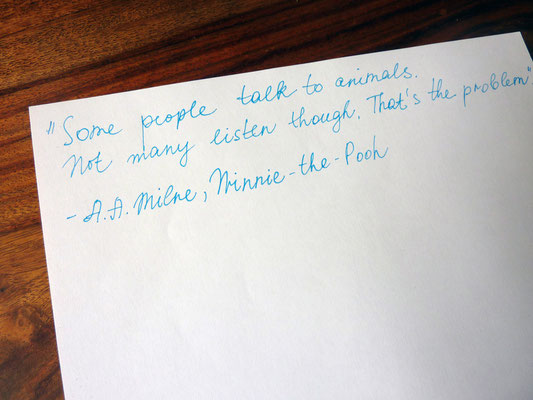 "Some people talk to animals.
Not many listen though. That's the problem"
- A.A. Milne, Winnie-the-Pooh